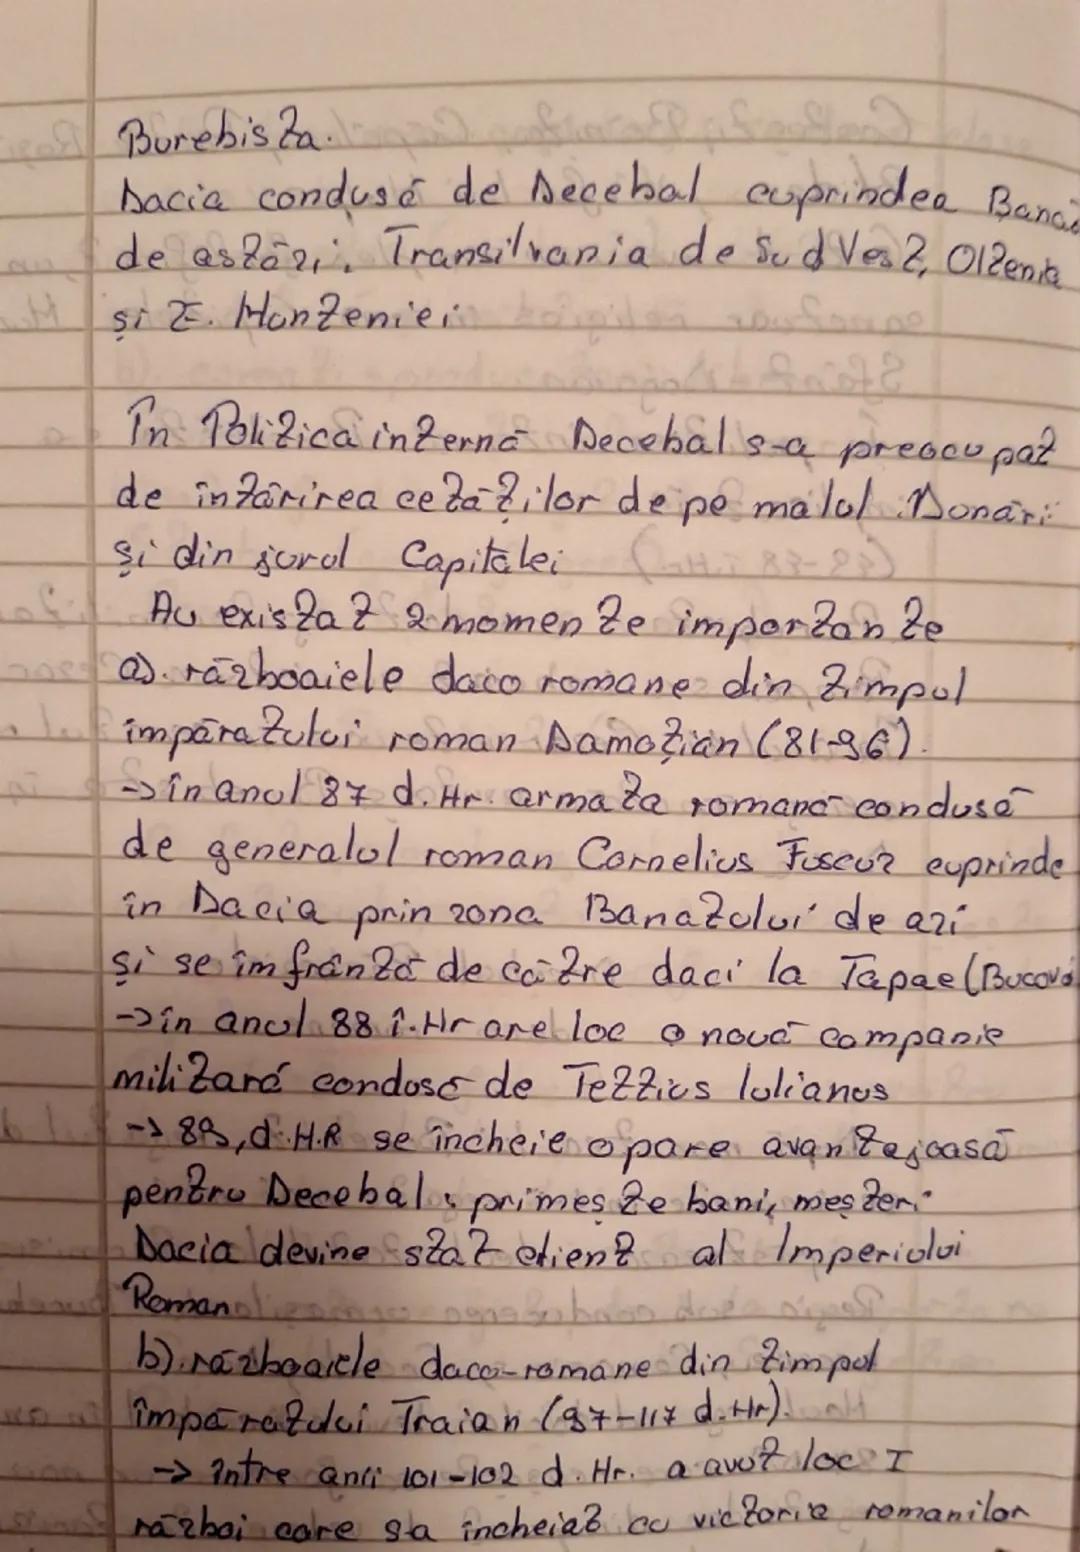 Burebista.
Dacia condusă de Decebal cuprindea Banat
de astăzi, Transilvania de Sud Vest, Oltenia
și E. Munteniei
În Politica internă Decebal s-a preocupat
de întărirea cetăților de pe malul Dunării
și din jurul Capitalei
Au existat 2 momente importante
a). războaiele daco romane din timpul
împăratului roman Damoțian (81-96).
->în anul 87 d.Hr. armata romană condusă
de generalul roman Cornelius Fuscuz cuprinde
în Dacia prin zona Banatului de azi
și se îmfrântă de către daci la Tapae (Bucova
->în anul 88 î.Hr are loc o nouă companie
militară condusă de Tettius Iulianus
-> 89, d.H.R se încheie o pare avantajoasă
pentru Decebal: primește bani, meșteri
Dacia devine stat client al Imperiului
Roman
b). războaiele daco-romane din timpul
împăratului Traian (97-117 d.Hr).
-> între anii 101-102 d.Hr. a avut loc I
război care s-a încheiat cu victoria romanilor